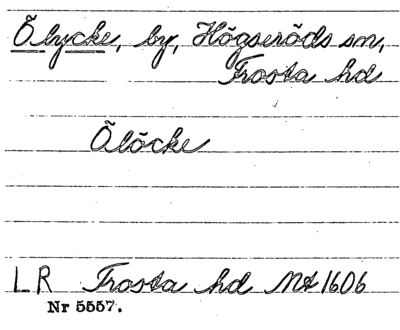 Ölycke, by, Högseröds sn,
Frosta hd
Ölöcke
LR Frosta hd Mt 1606
Nr 5557.